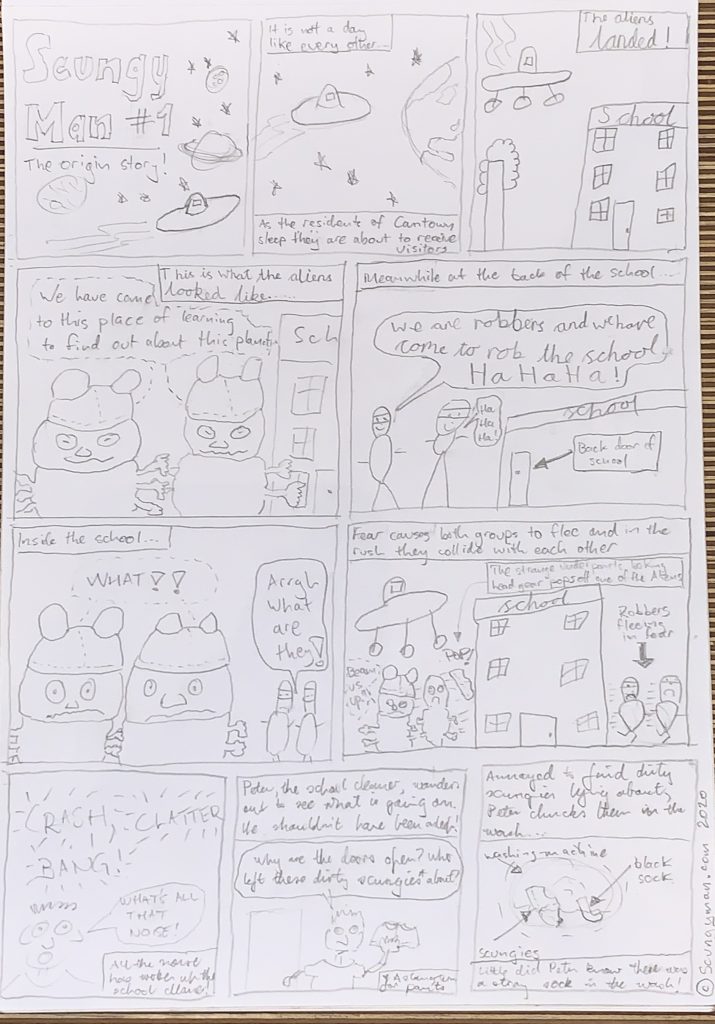 Scungy
Man #1
The origin story!
It is not a day
like every other...
As the residents of
sleep they are about to receive
visitors
The aliens
landed!
School
This is what the aliens
looked like.....
We have come
to this place of learning
to find out about this planet
Sch
Meanwhile at the back of the school....
We are robbers and we have
come to rob the school,
HaHaHa!
Ha
Ha
Ha!
school
Back door of
school
Inside the school...
WHAT!!
Arrgh
what
are
they!
Fear causes both groups to flee and in the
rush they collide with each other
The strange underpants looking
head gear pops off one of the Aliens
school
POP!
Beam
us
up
Robbers
fleeing
in fear
CRASH, CLATTER
BANG!
WHAT'S ALL
THAT
NOISE!
All the noise
has woken up the
school cleaner!
Peter, the school cleaner, wanders
out to see what is going on.
He shouldn't have been asleep!
Why are the doors open? Who
left these dirty scungies* about?
* A slang term
for pants
Annoyed to find dirty
scungies lying about,
Peter chucks them in the
wash...
washing-machine
black
sock
scungies
Little did Peter know there was
a stray sock in the wash!
© Scungyman.com 2020